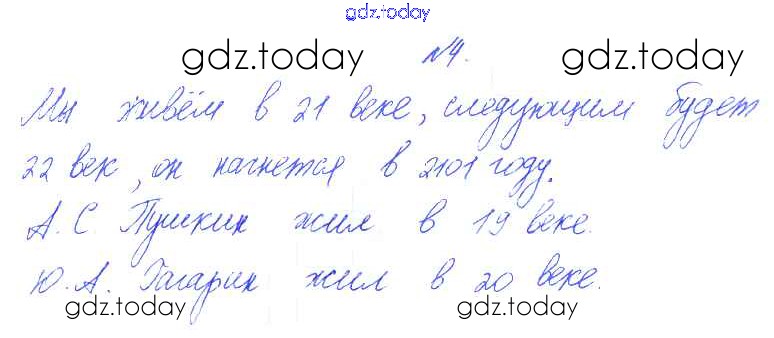 gdz.today
gdz.today №4. gdz.today
Мы живём в 21 веке, следующим будет
22 век, он начнется в 2101 году.
А. С. Пушкин жил в 19 веке.
Ю. А. Гагарин жил в 20 веке.
gdz.today gdz.today